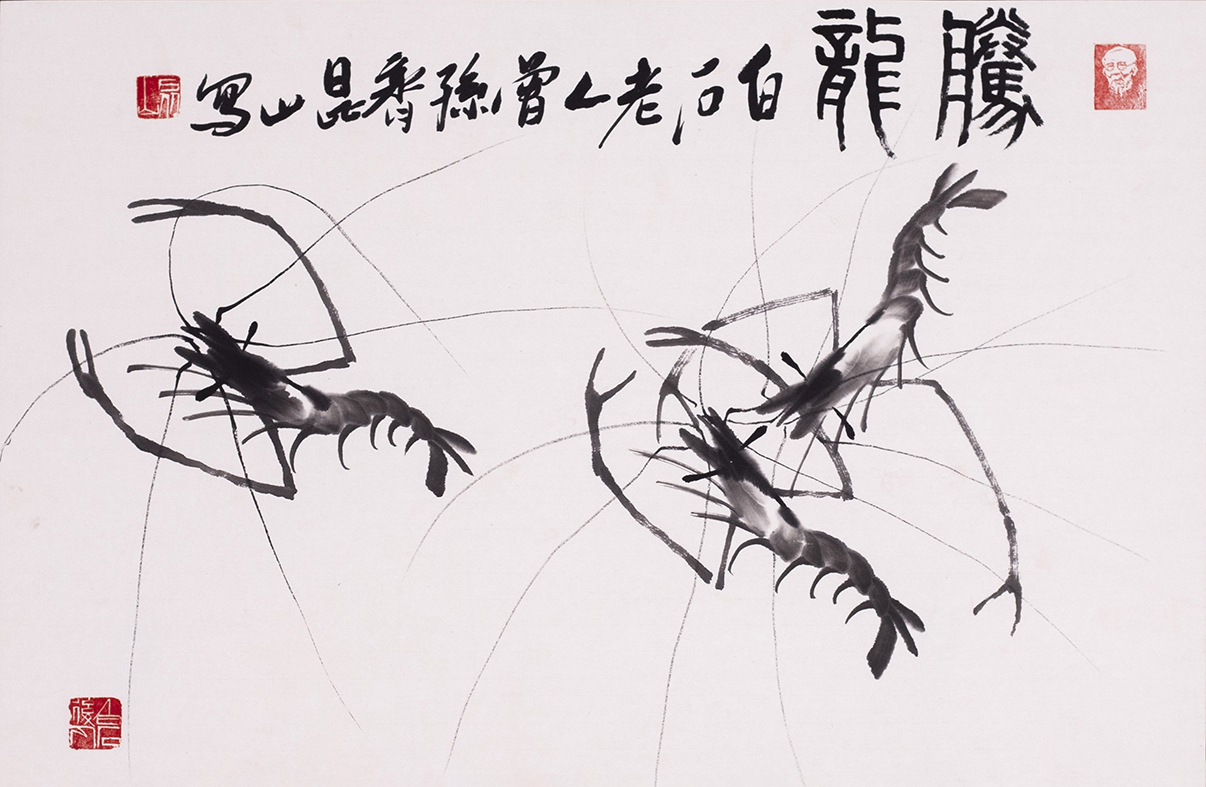 騰龍 白石老人曾孫齊昆山寫